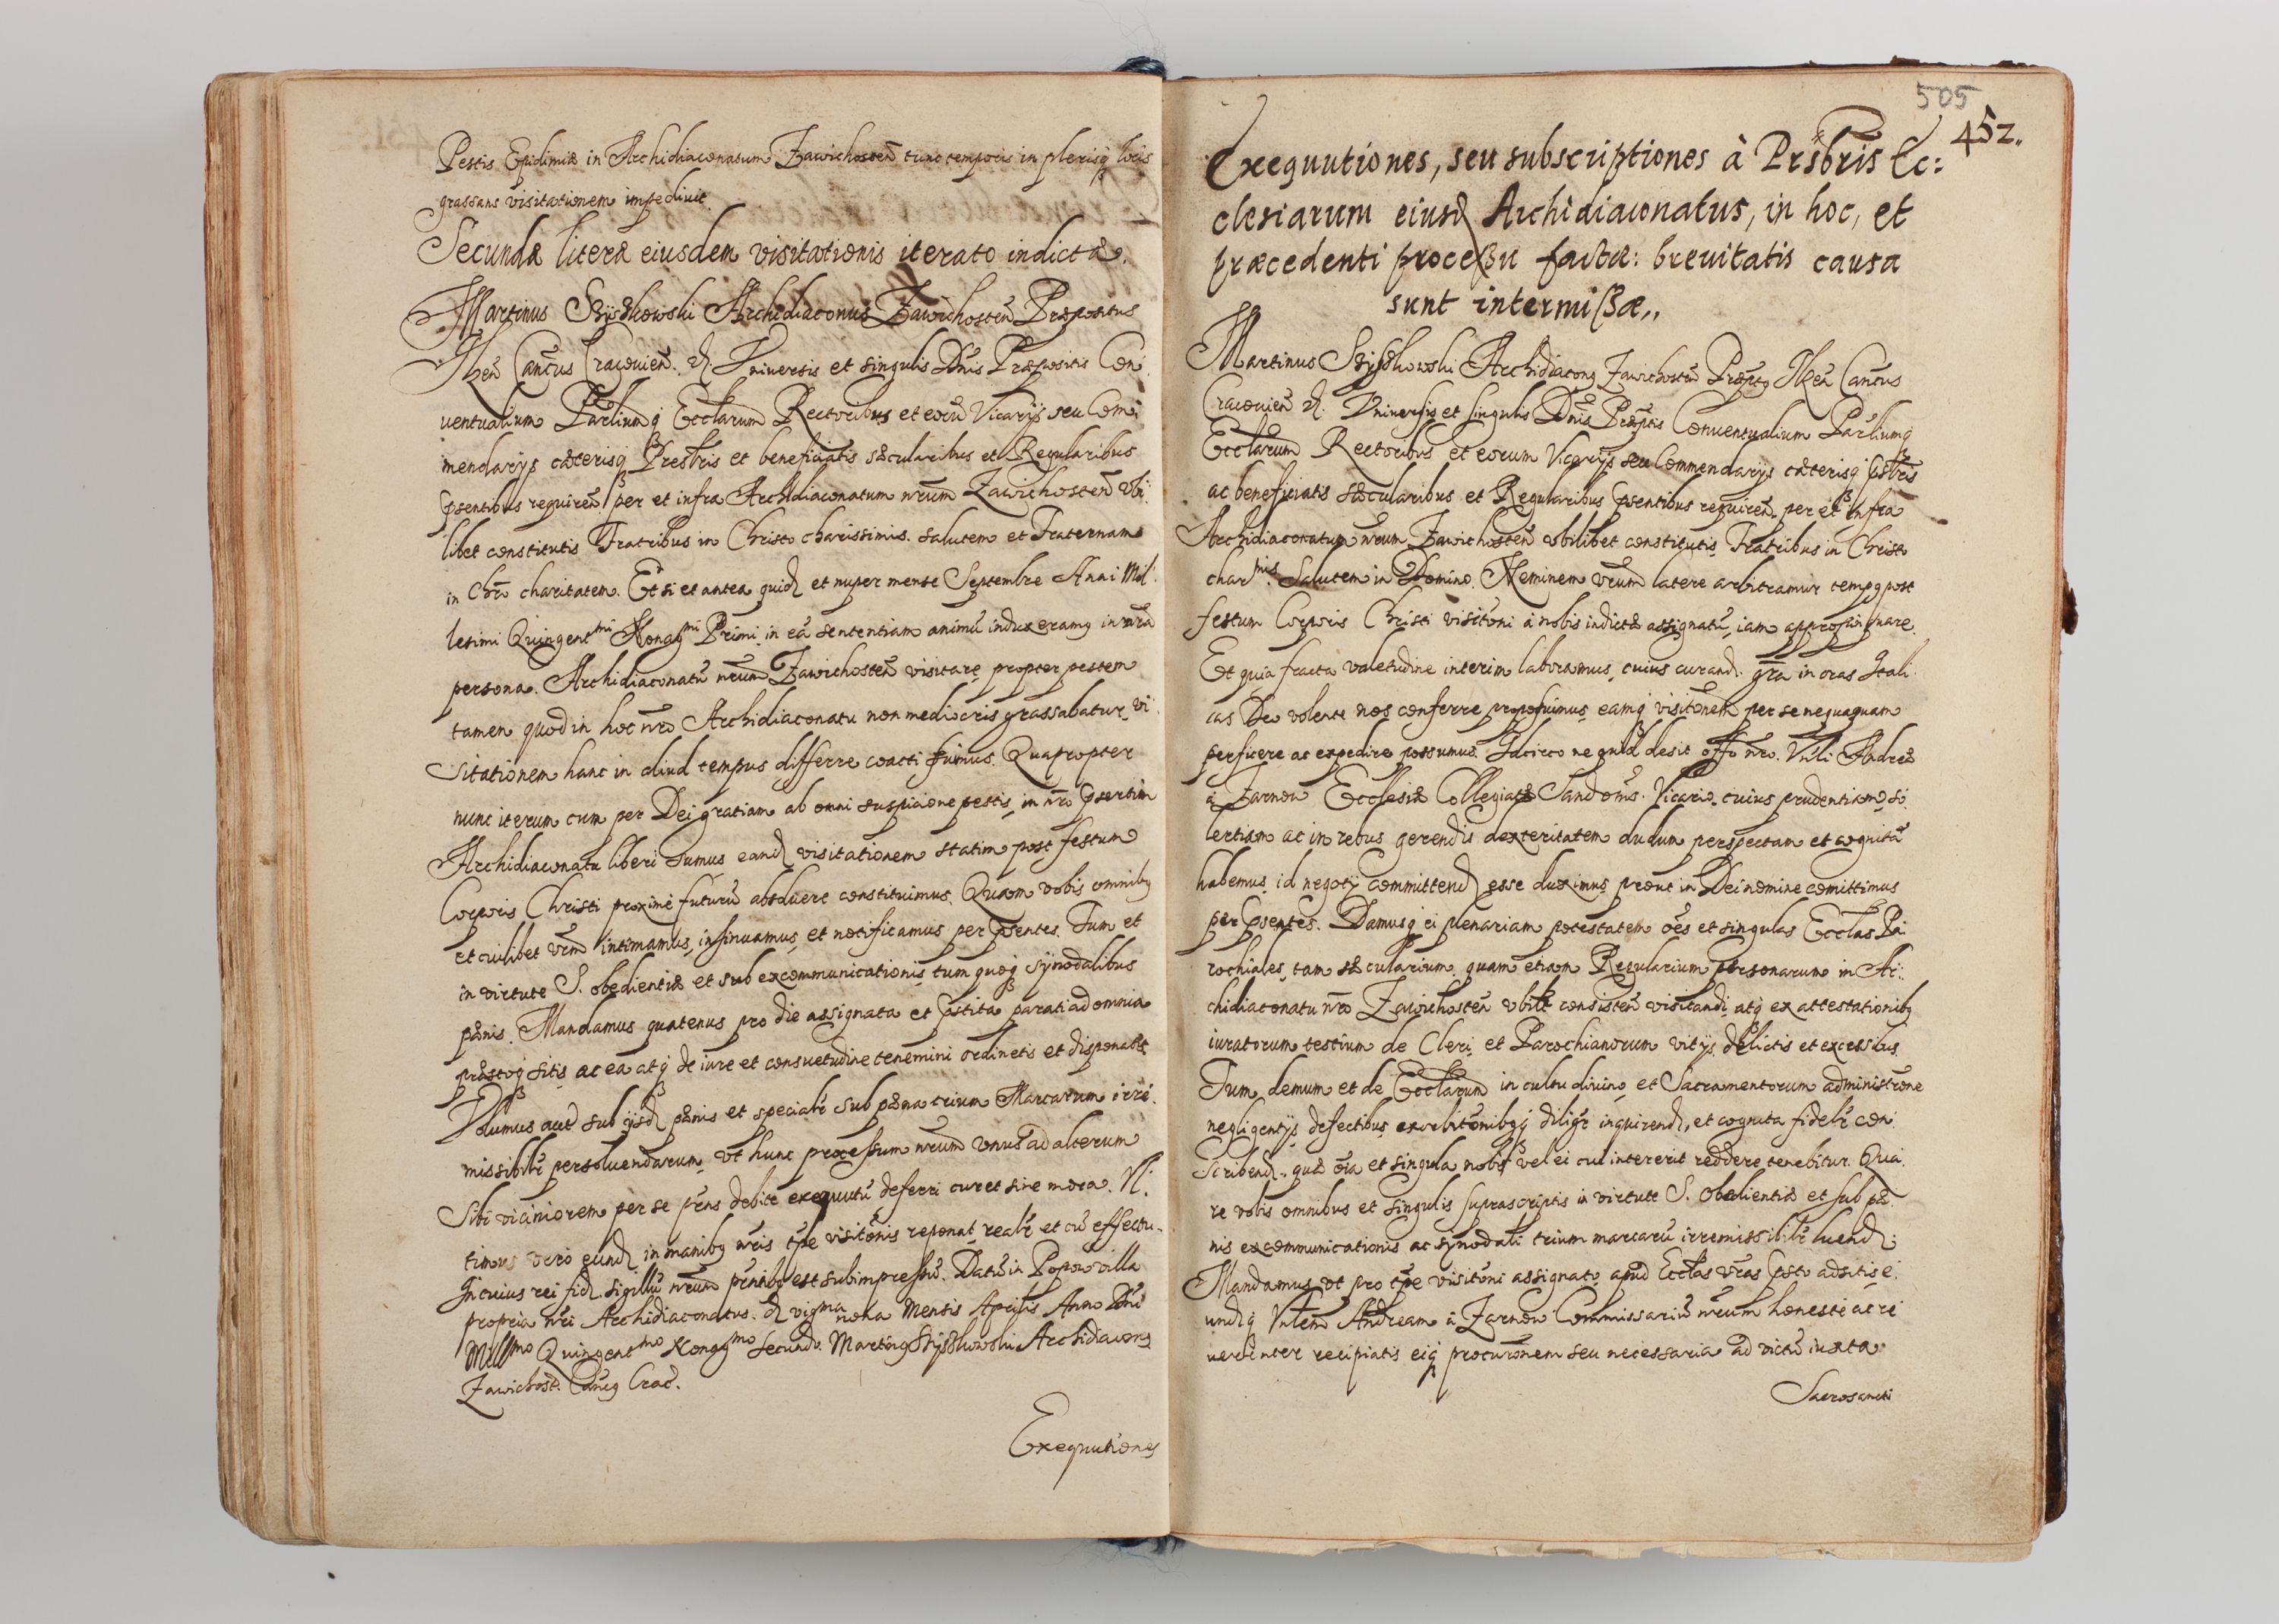 Pestis Epidimiæ in Archidiaconatum Zawichosteñ tunc temporis in plerisq locis
grassans visitationem impediuit.
Secundæ literæ eiusdem visitationis iterato indictæ.
Martinus Szÿszkowski Archidiaconus Zawichosteñ Præpositus
Ilzeñ Cantus Cracouieñ. Vniuersis et singulis Dnis Præpositis Con
uentualium Parlium q Ecclarum Rectoribus et eorũ Vicarijs seu Com
mendarijs cæterisq Presbris et beneficiatis sæcularibus et Regularibus
psentibus requireñ per et infra Archidiaconatum nrum Zawichosteñ vbi
libet constitutis Fratribus in Christo charissimis. Salutem et Fraternam
in Chro charitatem. Et si et antea quid et nuper mense Septembre Anni Mil
lesimi Quingent mi Nonag mi Primi in eã sententiam animũ induxeramq in nra
persona. Archidiaconatũ nrum Zawichosteñ visitare, propter pestem
tamen quod in hoc nro Archidiaconatu non mediocris grassabatur, vi
sitationem hanc in aliud tempus differre coacti fuimus. Quapropter
nunc iterum cum per Dei gratiam ab omni suspicione pestis, in nro psertim
Archidiaconatu liberi sumus, eand visitationem statim post festum
Corporis Christi proximè futurũ absoluere constituimus. Quam vobis omnibq
et cuilibet vrm intimamus, insinuamus, et notificamus per psentes. Tum et
in virtute S. obedientiæ et sub excommunicationis, tum quoq synodalibus
pœnis. Mandamus quatenus pro die assignata et pstita parati ad omnia
præstoq sitis ac ea atq de iure et consuetudine tenemini ordinetis et disponatis
Volumus aut sub ijsd pœnis et specialr sub pœna trium Marcarum irre
missibilr persoluendarum, vt hunc processum nrum vnus ad alterum
Sibi viciniorem per se pens debite exequutũ deferri curet sine mora. Vl
timus vero eund in manibq nris tpe visitonis reponat, realr et cũ effectu.
In cuius rei fid. sigillũ nrum pntibq est subimpressũ. Datũ in Popow villa
propria nri Archidiaconatus. d vig ma nona Mensis Aprilis Anno Dni
Mill mo Quingent mo Nonag mo Secundo. Martinq Szÿszkowski Archidiaconq
Zawichost. Cancq Crac.
Exequutiones
505
452.
Exequutiones, seu subscriptiones à Prsbris Ec:
clesiarum eiusd Archidiaconatus, in hoc, et
præcedenti proceßu factæ: breuitatis causa
sunt intermißæ,,
Martinus Szÿszkowski Archidiaconq Zawichosteñ Præptq Ilzeñ Cantus
Cracouieñ. Vniuersis et singulis Dnis Præptis Conuentualium Parliumq
Ecclarum Rectoribus et eorum Vicarijs seu Commendarijs cæterisq psbris
ac beneficiatis sæcularibus et Regularibus psentibus requireñ. per et infra
Archidiaconatum nrum Zawichosteñ vbilibet constitutis, Fratribus in Christo
char mis. Salutem in Domino. Neminem vrum latere arbitramur tempq post
festum Corporis Christi visitoni à nobis indictæ assignatũ, iam appropinquare.
Et quia fracta valetudine interim laboramus, cuius curand. gra in oras Itali
cas Deo volente nos conferre proposuimus, eamq visitonem per se nequaquam
perficere ac expedire possumus. Idcirco ne quid desit offo nro. Vnli Andreæ
à Zarnow Ecclesiæ Collegiatæ Sandomis. Vicario, cuius prudentiam, so
lertiam ac in rebus gerendis dexteritatem dudum perspectam et cognitã
habemus, id negotij committend esse duximus, prout in Dei nomine comittimus
per psentes. Damusq ei plenariam potestatem oẽs et singulas Ecclas Pa
rochiales, tam sæcularium quam etiam Regularium personarum in Ar:
chidiaconatu nro Zawichosteñ vbilt consisteñ visitandi, atq ex attestationibq
iuratorum testium de Cleri, et Parochianorum vitijs, delictis et excessibus.
Tum demum et de Ecclarum in cultu diuino, et Sacramentorum administrone
negligentijs, defectibus, exorbitonibqq diligr inquirend, et cognita fidelr con
scribend. quæ oĩa et singula nobis vel ei cui intererit reddere tenebitur. Qua
re vobis omnibus et singulis suprascriptis in virtute S. Obedientiæ et sub pœ
nis excommunicationis ac synodali trium marcarũ irremissibilr luend:
Mandamus, vt pro tpe visitoni assignato, apud Ecclas vras psto adsitis, e
undq Vnlem Andream à Zarnow Commissariũ nrum honeste ac re
uerenter recipiatis eiq procuronem seu necessaria ad victũ iuxta
Sacrosancti